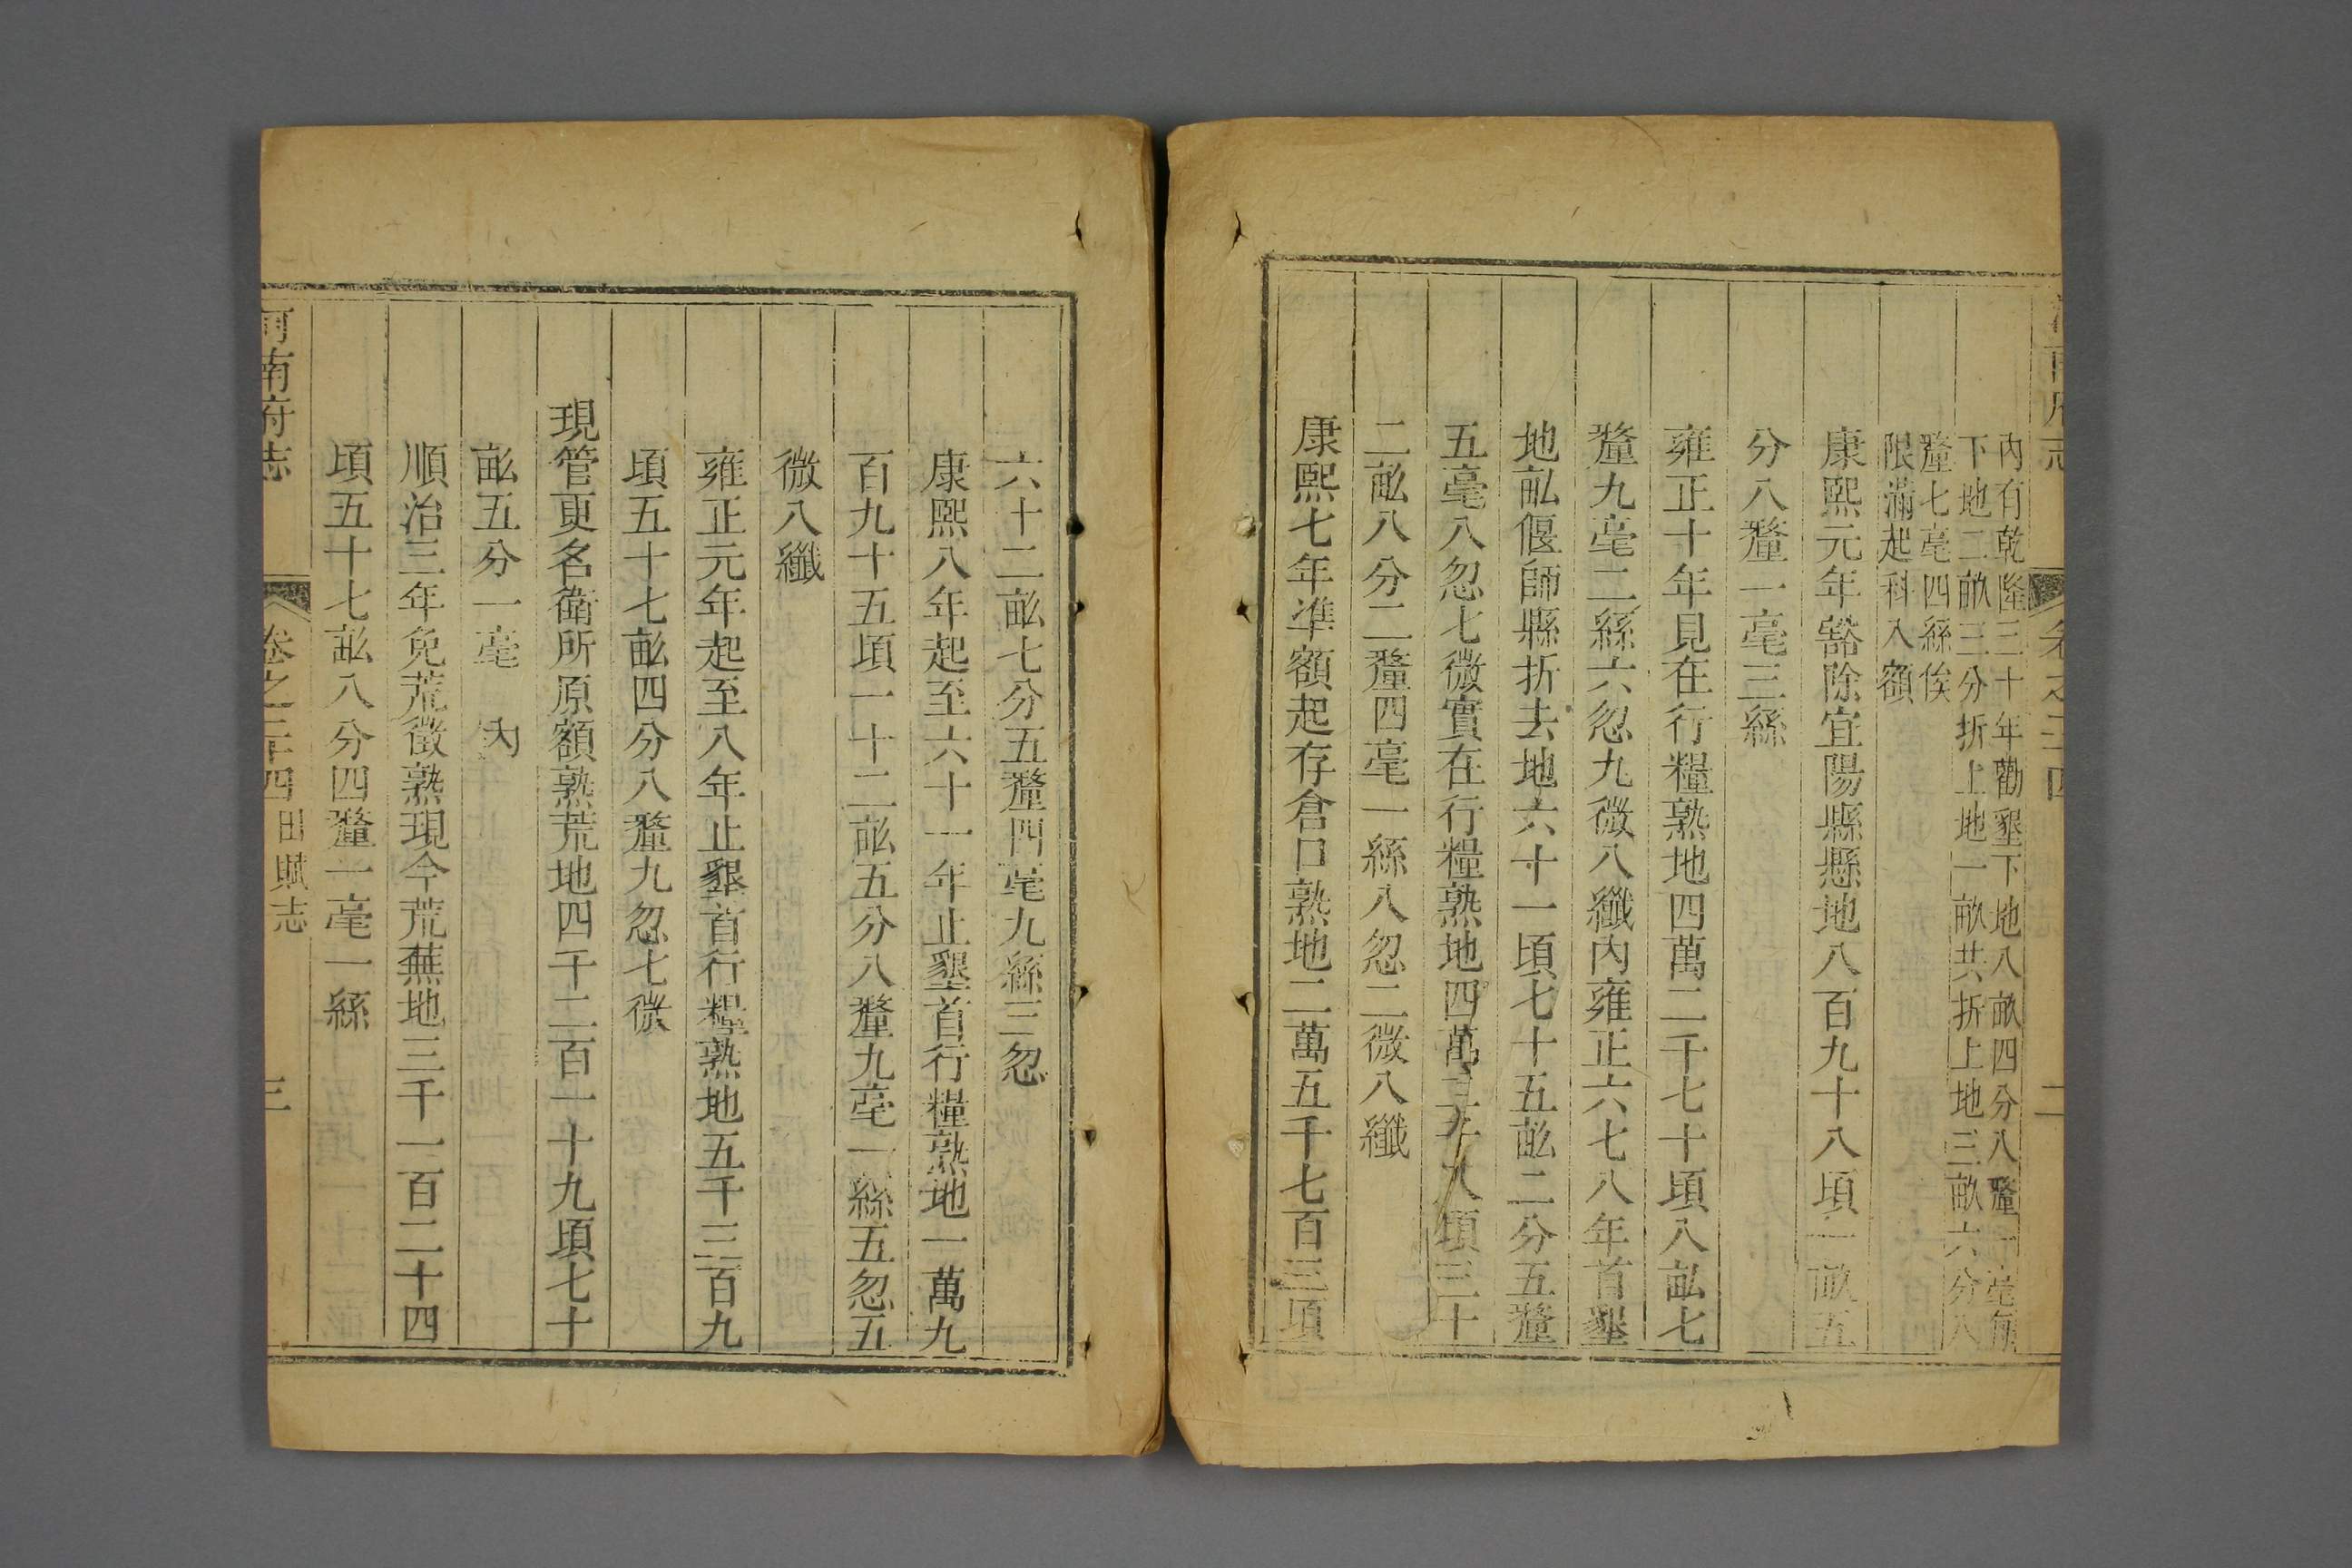 內有乾隆三十年勸墾下地八畝四分八釐一毫每
下地二畝三分折上地一畝共折上地三畝六分八
釐七毫四絲俟
限滿起科入額
康熙元年豁除宜陽縣懸地八百九十八頃一畝五
分八釐一毫三絲
雍正十年見在行糧熟地四萬二千七十頃八畆七
釐九毫二絲六忽九微八纖內雍正六七八年首墾
地畆偃師縣折去地六十一頃七十五畆二分五釐
五毫八忽七微實在行糧熟地四萬二千八頃三十
二畆八分二釐四毫一絲八忽二微八纖
康熙七年準額起存倉口熟地二萬五千七百三項
六十二畆七分五釐四毫九絲三忽
康熙八年起至六十一年止墾首行糧熟地一萬九
百九十五頃一十二畆五分八釐九毫一絲五忽五
微八纖
雍正元年起至八年止墾首行糧熟地五千三百九
頃五十七畆四分八釐九忽七微
現管更名衛所原額熟荒地四千二百一十九頃七十
畆五分一毫　內
順治三年免荒徵熟現今荒蕪地三千一百二十四
頃五十七畆八分四釐一毫一絲
河南府志　卷之二十四　田賦志　三